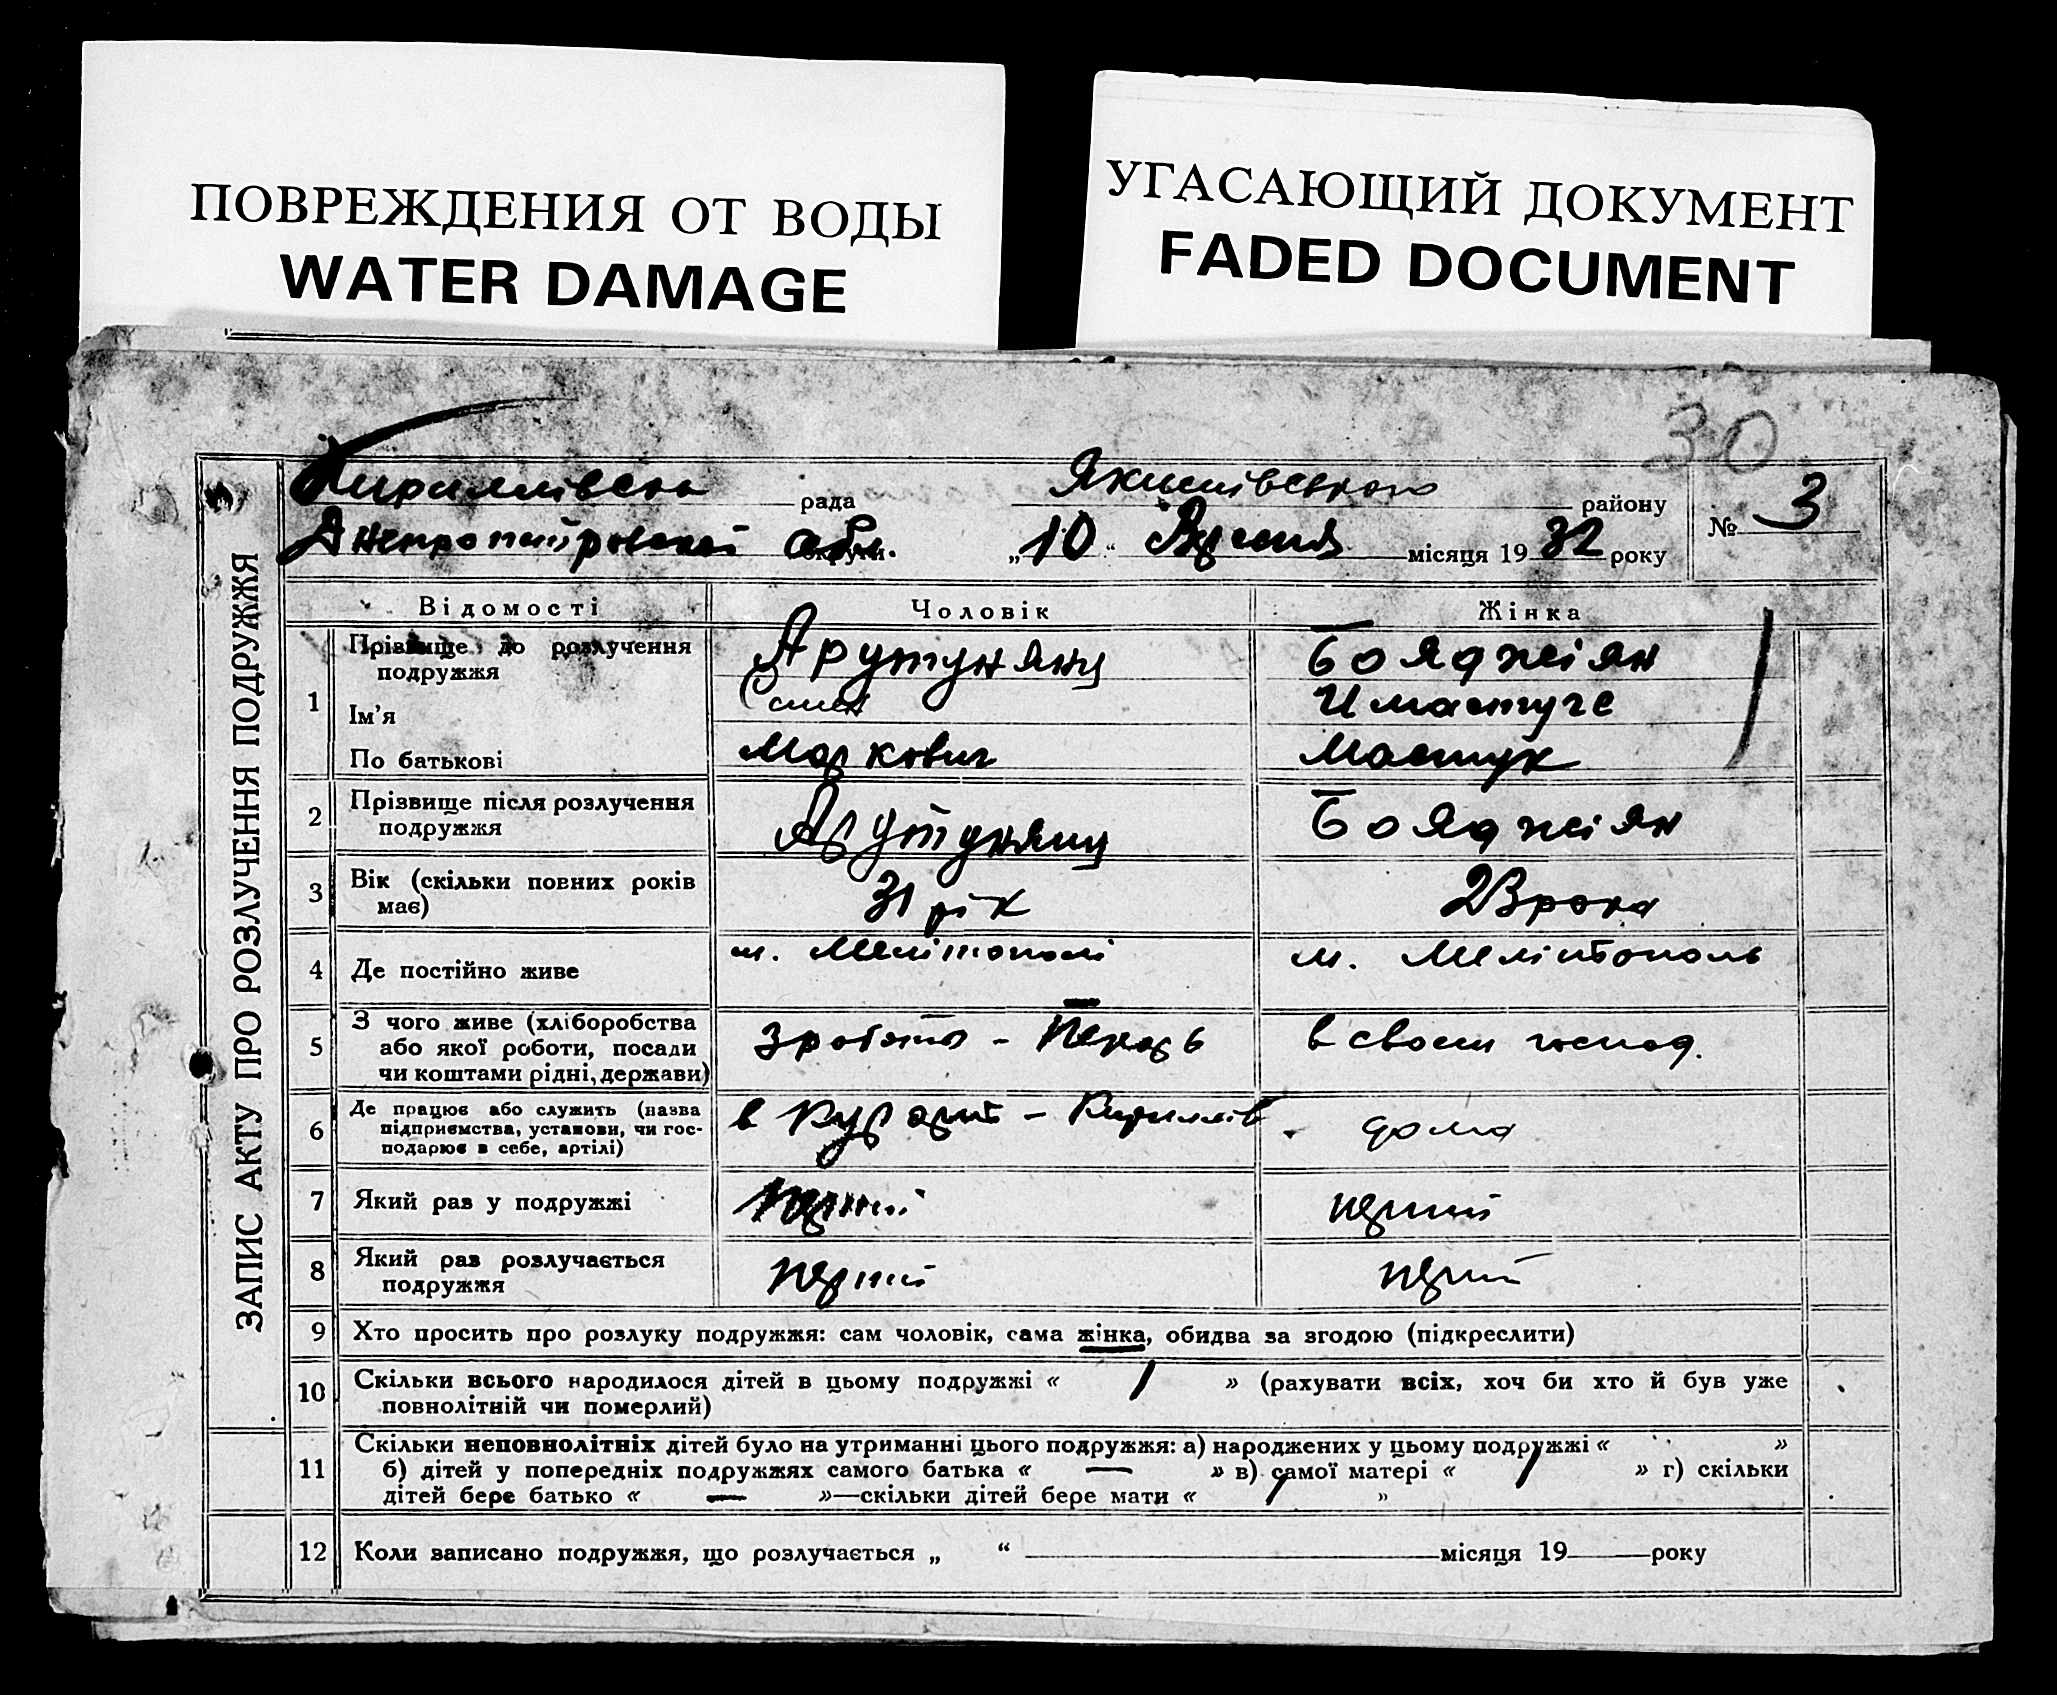 ПОВРЕЖДЕНИЯ ОТ ВОДЫ
WATER DAMAGE
УГАСАЮЩИЙ ДОКУМЕНТ
FADED DOCUMENT
30
ЗАПИС АКТУ ПРО РОЗЛУЧЕННЯ ПОДРУЖЖЯ
рада району № 3
обл. „10“ місяця 1932 року
Відомості Чоловік Жінка
1 Прізвище до розлучення подружжя Арутунянц Бояджіян
Ім'я
По батькові Маркович
2 Прізвище після розлучення подружжя Арутунянц Бояджіян
3 Вік (скільки повних років має) 31 рік 23 рока
4 Де постійно живе м. Мелітополі м. Мелітополь
5 З чого живе (хліборобства або якої роботи, посади чи коштами рідні, держави) з роботи - Пекарь в своем господ.
6 Де працює або служить (назва підприємства, установи, чи господарює в себе, артілі) в Курорт - Кирилів. дома
7 Який раз у подружжі
8 Який раз розлучається подружжя
9 Хто просить про розлуку подружжя: сам чоловік, сама жінка, обидва за згодою (підкреслити)
10 Скільки всього народилося дітей в цьому подружжі « 1 » (рахувати всіх, хоч би хто й був уже
повнолітній чи померлий)
11 Скільки неповнолітніх дітей було на утриманні цього подружжя: а) народжених у цьому подружжі « »
б) дітей у попередніх подружжях самого батька « — » в) самої матері « 1 » г) скільки
дітей бере батько « — »—скільки дітей бере мати « 1 »
12 Коли записано подружжя, що розлучається „ “ місяця 19 року